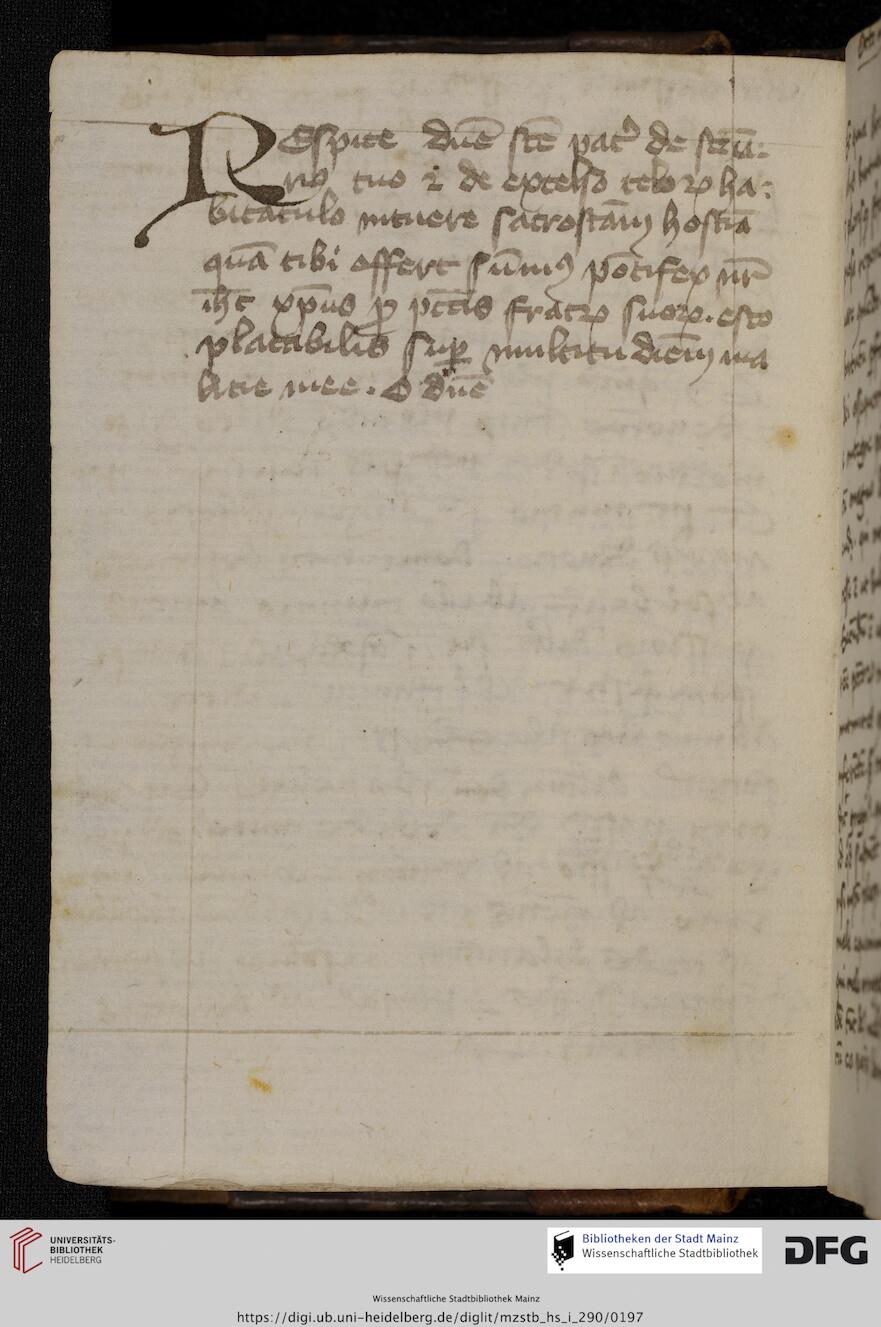 REspice dn̄e sc̄e pat᷑ de sc̄tu-
rio tuo ⁊ de excelso celoꝝ ha-
bitaculo intuere sacrosc̄am hostiā
quā tibi offert sūmꝰ pōtifex nr̄
ih̄c xp̄us ꝓ pc̄cis fratꝝ suoꝝ. esto
placabilis suꝑ multitudinem ma
licie mee. O dn̄e
UNIVERSITÄTS-
BIBLIOTHEK
HEIDELBERG
Bibliotheken der Stadt Mainz
Wissenschaftliche Stadtbibliothek
DFG
Wissenschaftliche Stadtbibliothek Mainz
https://digi.ub.uni-heidelberg.de/diglit/mzstb_hs_i_290/0197